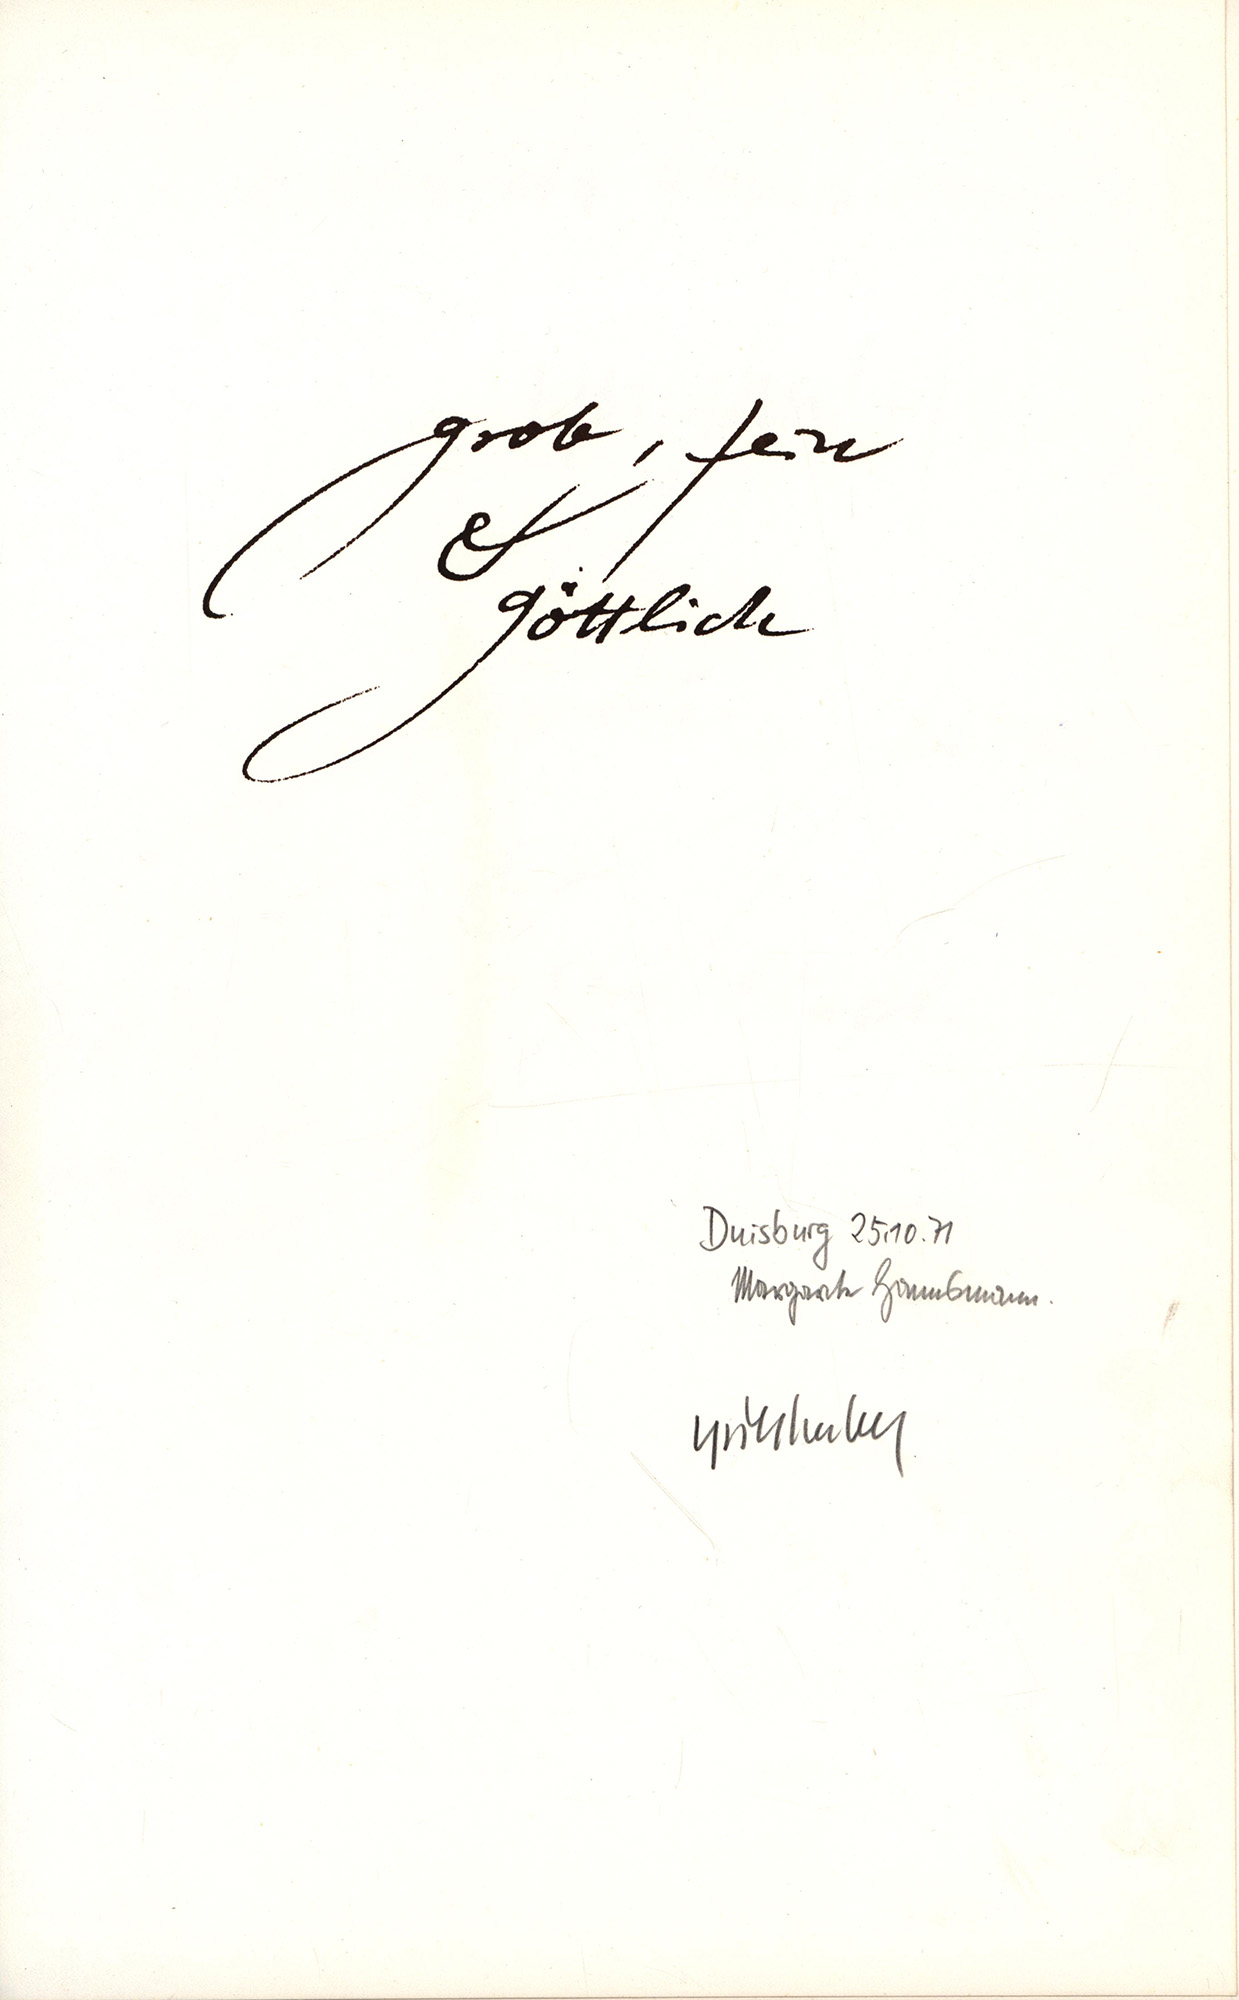 grob, fein
&
göttlich
Duisburg 25.10.71
Margarete Hannsmann.
grieshaber